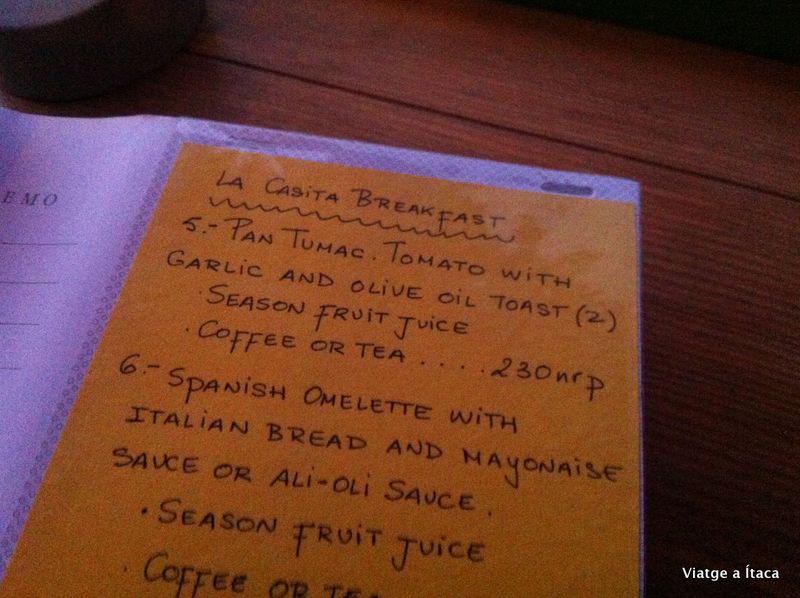 EMO
LA CASITA BREAKFAST
5.- PAN TUMAC. TOMATO WITH
GARLIC AND OLIVE OIL TOAST (2)
· SEASON FRUIT JUICE
· COFFEE OR TEA . . . . 230 nrp
6.- SPANISH OMELETTE WITH
ITALIAN BREAD AND MAYONAISE
SAUCE OR ALI-OLI SAUCE.
· SEASON FRUIT JUICE
· COFFEE OR TEA
Viatge a Ítaca